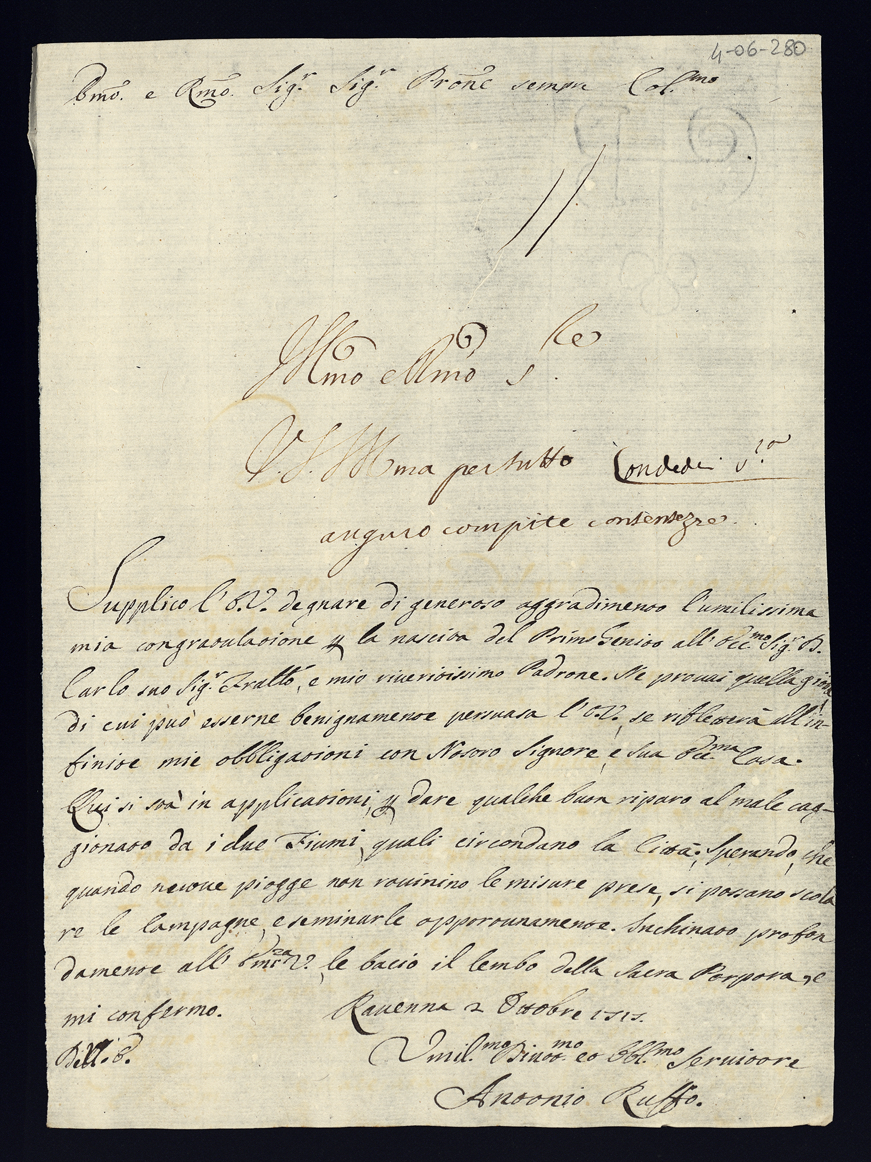 4-06-280
Emo. e Rmo. Sig.r Sig.r Prone sempre Col.mo
Illmo e Rmo s.re
V. S. Illma per tutto
auguro compite contentezze
Supplico l'E.V. degnare di generoso aggradimento l'umilissima
mia congratulazione p la nascita del Primogenito all'Ecc.mo Sig.r D.
Carlo suo Sig.r Fratlo, e mio riveritissimo Padrone. Ne provai quella gioia
di cui può esserne benignamente persuasa l'E.V., se rifletterà all'in-
finite mie obbligazioni con Nostro Signore, e sua Ecc.ma Casa.
Qui si stà in applicazioni p dare qualche buon riparo al male cag-
gionato da i due Fiumi, quali circondano la Città; sperando, che
quando nuove piogge non rovinino le misure prese, si possano scola
re le Campagne, e seminarle opportunamente. Inchinato profon
damente all'Em.za V., le bacio il lembo della Sacra Porpora, e
mi confermo. Ravenna 2 Ottobre 1715.
Dell'E.V. Vmil.mo Divot.mo ed Obbl.mo Servitore
Antonio Ruffo.